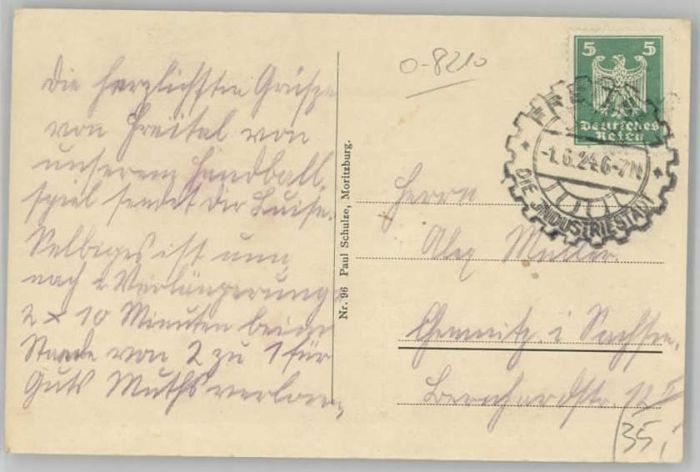 Die herzlichsten Grüße
von Freital von
unserem Handball
spiel sendet dir Luise.
Selbiges ist nun,
nach Verlängerung
2 x 10 Minuten beim
Stande von 2 zu 1 für
Guts Muths verlorn,
Nr. 96 Paul Schulze, Moritzburg.
0-8210
5 5
Deutsches
Reich
FREITAL
-1.6.24.6-7N
DIE INDUSTRIESTADT
Herrn
Alex Müller.
Chemnitz. i Sachsen.
Bernhardstr. 12 II
35,-